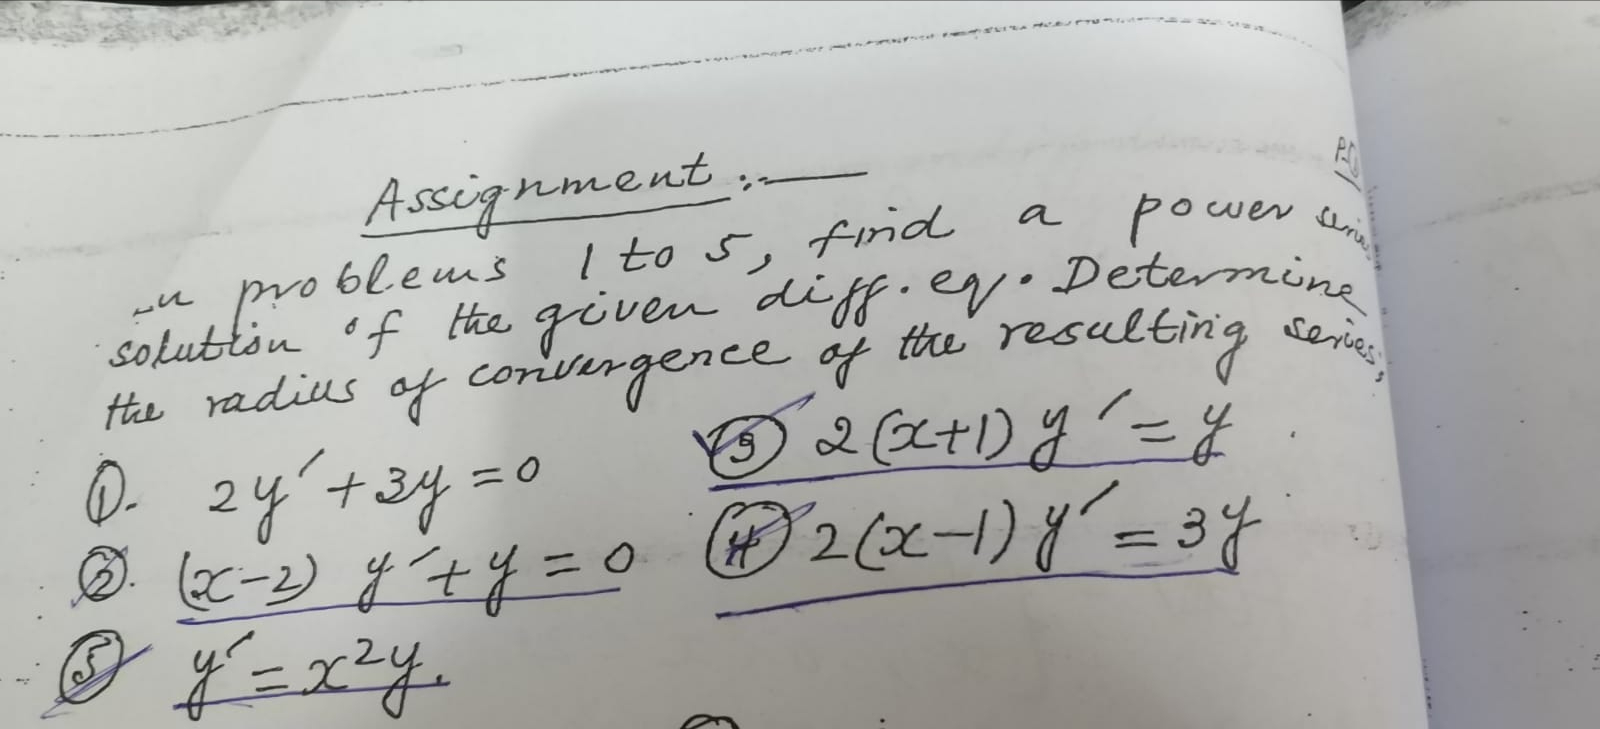 Assignment :-
In problems 1 to 5, find a power series
solution of the given diff. eq. Determine
the radius of convergence of the resulting series,
①. 2y′ + 3y = 0
③ 2(x+1) y′ = y
②. (x-2) y′ + y = 0
④ 2(x-1) y′ = 3y
⑤ y′ = x²y.